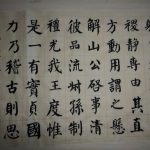 稷靜專由其直
方動用謂之懸
解山公啓事清
彼品流叔孫制
禮光我王度惟
是一有實貞國
力乃稽古則思